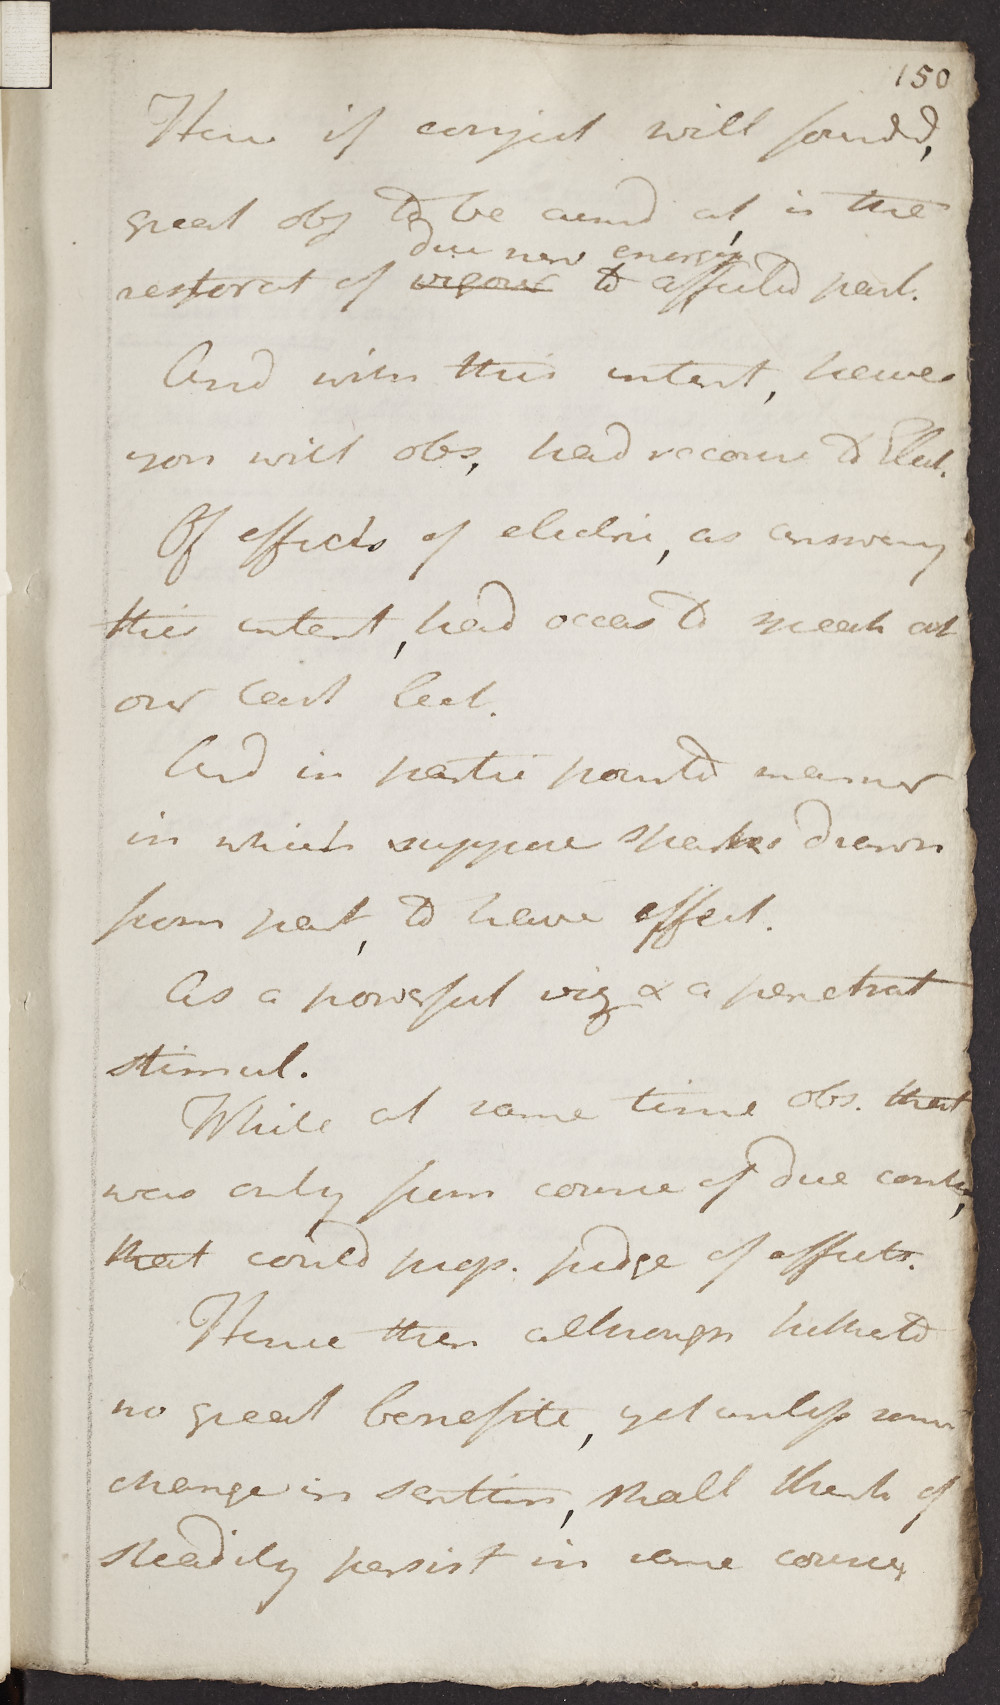 150
Hence if conject well foundd,
great obj to be aimd at, is the
due nerv energy
restorat of vigour to affected part.
And with this intent, have
you will obs, had recourse to Elect.
Of effects of electric, as answering
this intent, had occas to speak at
our last Lect.
And in partic pointd manner
in which suppose sparks drawn
from part, to have effect.
As a powerful vig & a penetrat
stimul.
While at same time obs. that
was only from course of due contin,
that could prop. judge of effects.
Hence then although hitherto
no great benefite, yet unless some
change in sentim, shall think of
steadily persist in same course